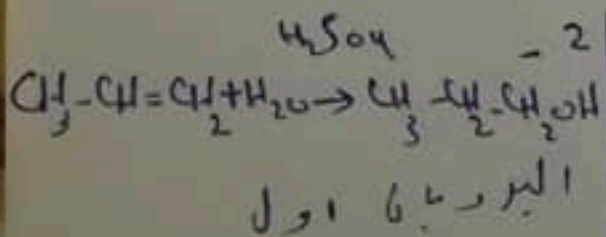 2 -
H₂SO₄
CH₃-CH=CH₂+H₂O→CH₃-CH₂-CH₂OH
البروبانا اول